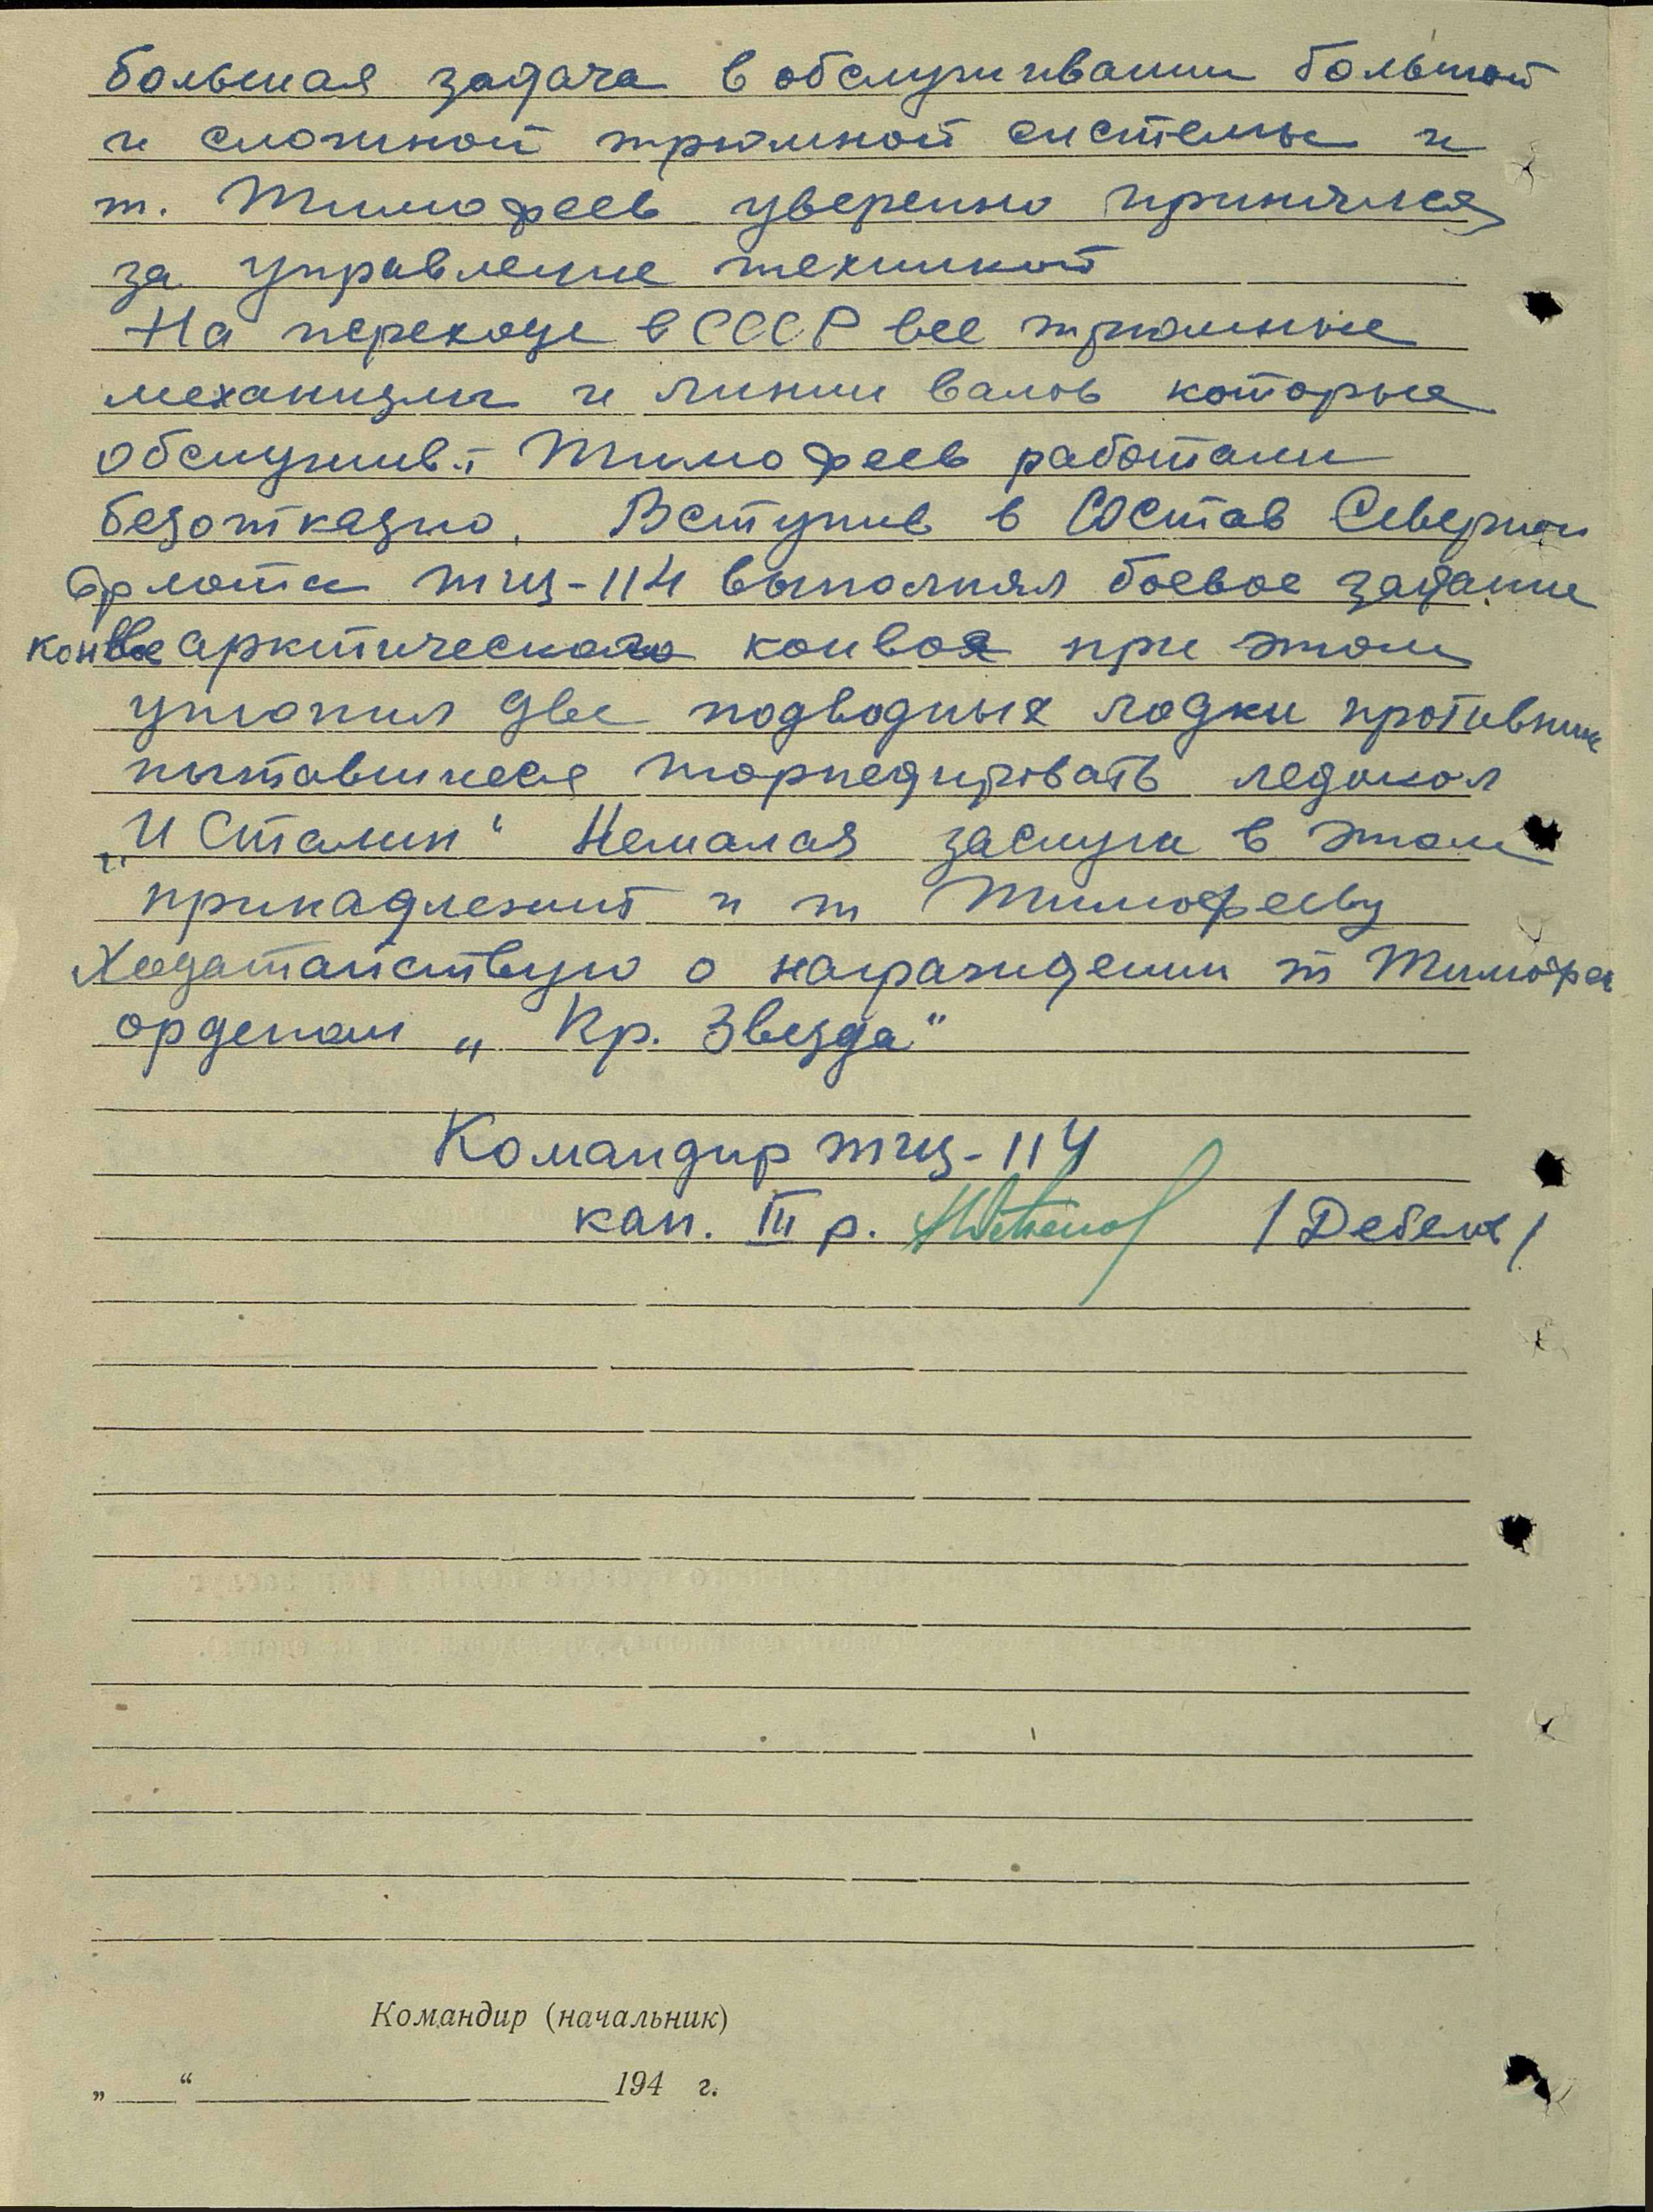 большая задача в обслуживании большой
и сложной трюмной системы и
т. Тимофеев уверенно принялся
за управление техникой
На переходе в СССР все трюмные
механизмы и линии валов которые
обслужив. т Тимофеев работали
безотказно. Вступив в Состав Северном
флота тщ-114 выполнял боевое задание
арктического конвоя при этом
утопил две подводных лодки противник
пытавшиеся торпедировать ледокол
„И Сталин“ Немалая заслуга в этом
принадлежит и т Тимофееву
Ходатайствую о награждении т Тимофеев
орденом „Кр. Звезда“
Командир тщ-114
кап. III р. /Дебелов/
Командир (начальник)
„ “ 194 г.